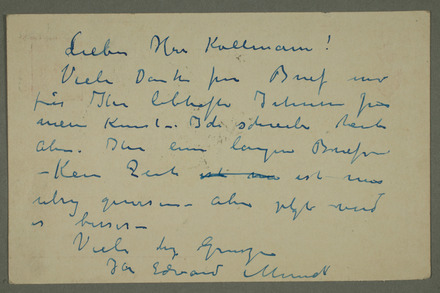 Lieber Herr Kollmann!
Viele Dank für Brief und
für Ihr lebhafte Interesse für
meine Kunst – Ich schreibe
aber Ihn ein langen Brief
– Kein Zeit ist
übrig gewesen – aber jetzt wird
es besser –
Viele Grüsse
Ihr Edvard Munch